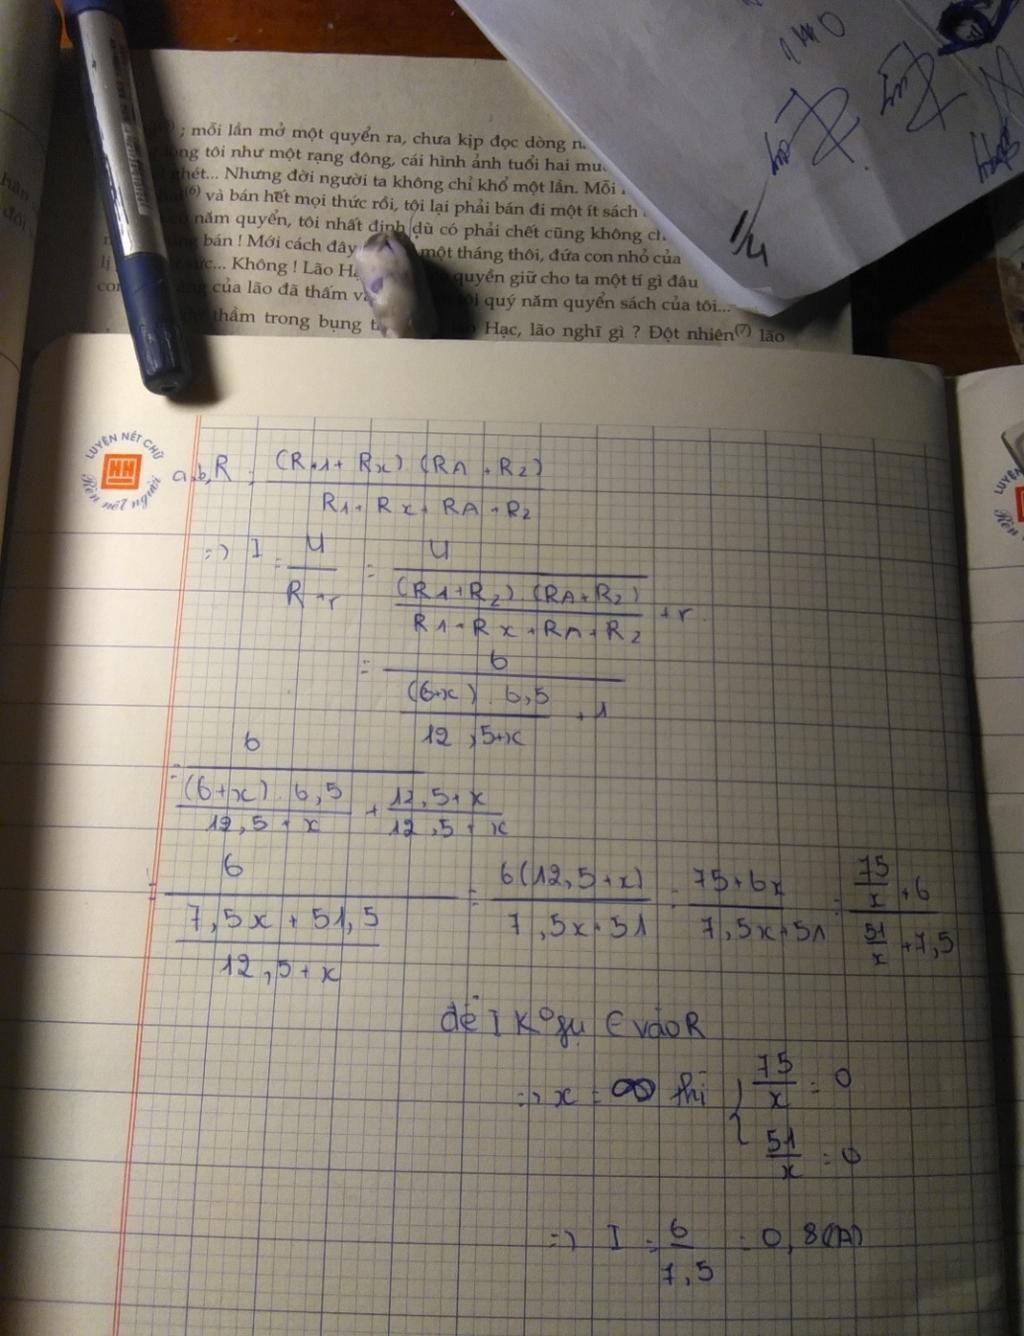 ; mỗi lần mở một quyển ra, chưa kịp đọc dòng
tôi như một rạng đông, cái hình ảnh tuổi hai
ghét... Nhưng đời người ta không chỉ khổ một lần. Mỗi
(6) và bán hết mọi thức rồi, tôi lại phải bán đi một ít sách
năm quyển, tôi nhất định dù có phải chết cũng không
bán ! Mới cách đây một tháng thôi, đứa con nhỏ của
lị ... Không ! Lão quyền giữ cho ta một tí gì đâu
của lão đã thấm quý năm quyển sách của tôi...
thầm trong bụng Hạc, lão nghĩ gì ? Đột nhiên(7) lão
LUYỆN NÉT CHỮ
HH
Rèn nết người
R = (R1 + Rx) (RA + R2) / R1 + Rx + RA + R2
=> I = U / R + r = U / ((R1 + R2) (RA + R2) / R1 + Rx + RA + R2 + r)
= 6 / ((6+x) 6,5 / 12,5+x + 1)
= 6 / ((6+x) 6,5 / 12,5+x + 12,5+x / 12,5+x)
= 6 / (7,5x + 51,5 / 12,5+x) = 6(12,5+x) / 7,5x+51 = 75+6x / 7,5x+51 = (75/x + 6) / (51/x + 7,5)
để I K° fụ ∈ vào R
=> x = ∞ thì { 75/x = 0
51/x = 0
=> I = 6 / 7,5 = 0,8(A)